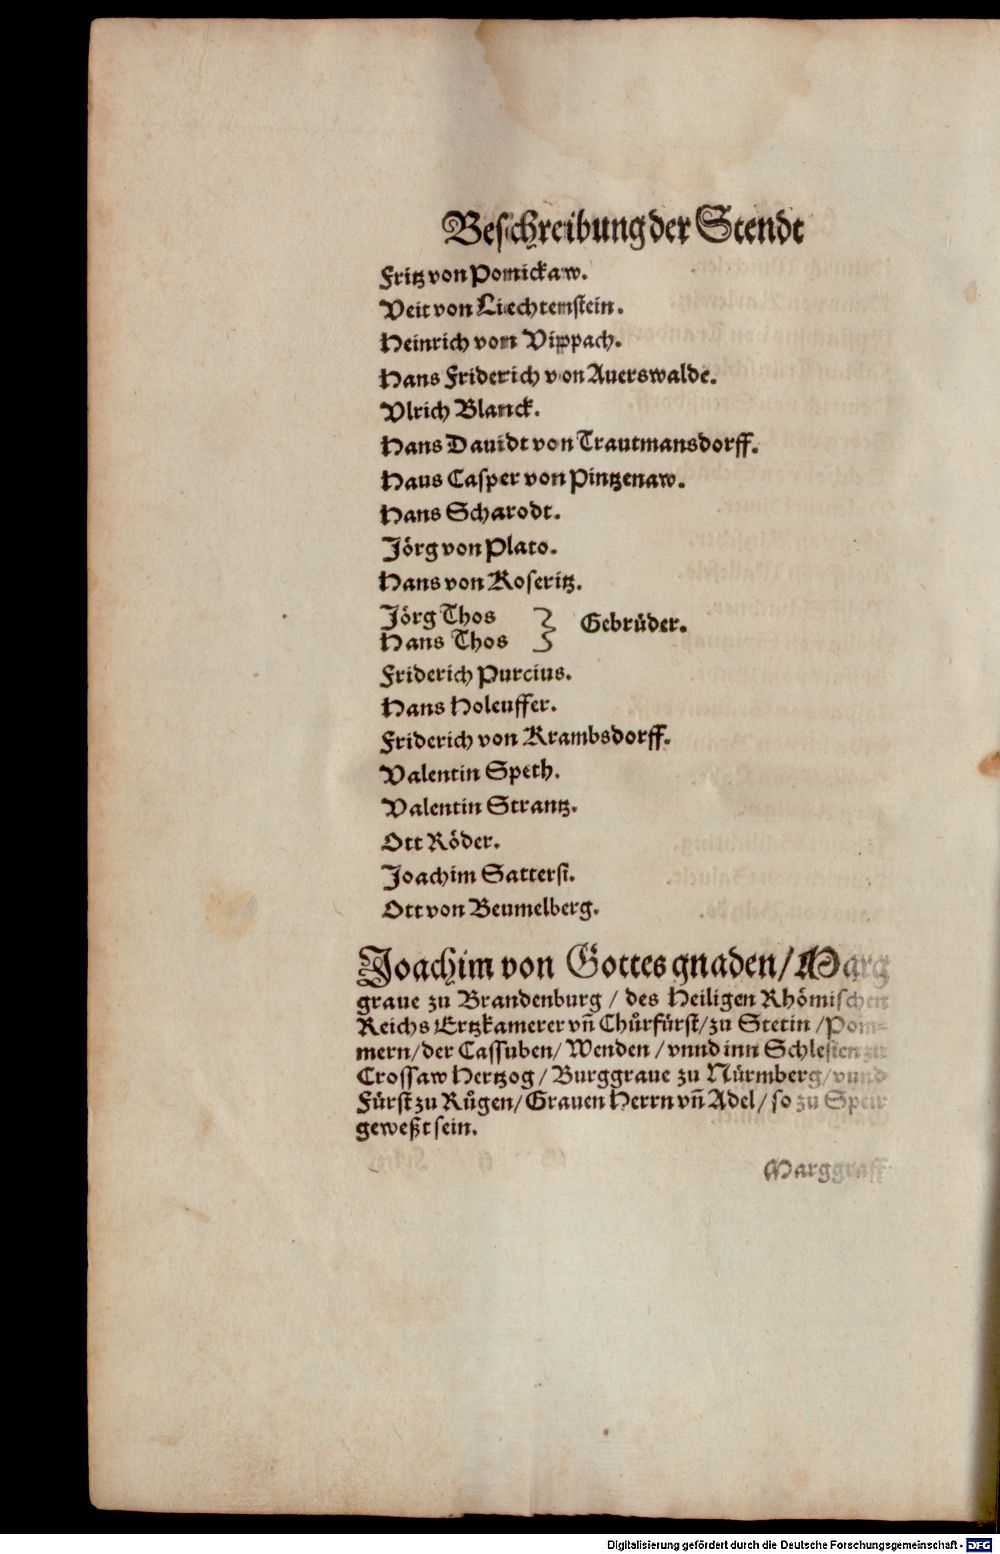 Beschreibung der Stendt
Fritz von Pomickaw.
Veit von Liechtenstein.
Heinrich vom Vippach.
Hans Friderich von Auerswalde.
Vlrich Blanck.
Hans Dauidt von Trautmansdorff.
Haus Casper von Pintzenaw.
Hans Scharodt.
Jörg von Plato.
Hans von Koseritz.
Jörg Thos
Hans Thos } Gebrüder.
Friderich Purcius.
Hans Holeuffer.
Friderich von Krambsdorff.
Valentin Speth.
Valentin Strantz.
Ott Röder.
Joachim Sattersi.
Ott von Beumelberg.
Joachim von Gottes gnaden/ Marg
graue zu Brandenburg / des Heiligen Rhömischen
Reichs Ertzkamerer vñ Chůrfürst/zu Stetin /Pom=
mern/der Cassuben/ Wenden /vnnd inn Schlesien zu
Crossaw Hertzog/ Burggraue zu Nürmberg/vnnd
Fürst zu Rügen/ Grauen Herrn vñ Adel/ so zu Speir
geweßt sein.
Marggraff
Digitalisierung gefördert durch die Deutsche Forschungsgemeinschaft - DFG